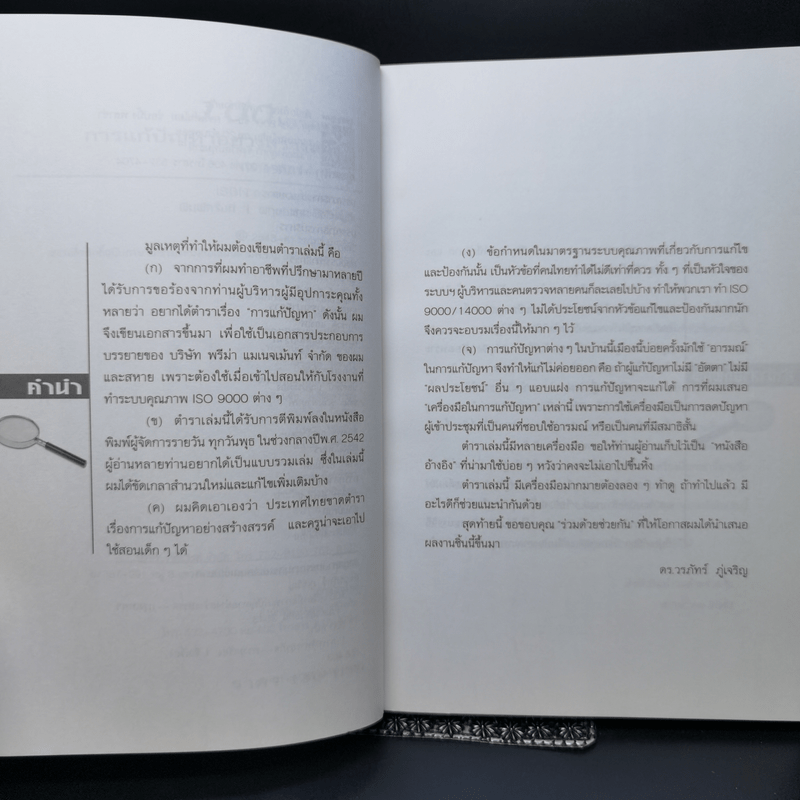 คำนำ
มูลเหตุที่ทำให้ผมต้องเขียนตำราเล่มนี้ คือ
(ก) จากการที่ผมทำอาชีพที่ปรึกษามาหลายปี
ได้รับการขอร้องจากท่านผู้บริหารผู้มีอุปการะคุณทั้ง
หลายว่า อยากได้ตำราเรื่อง "การแก้ปัญหา" ดังนั้น ผม
จึงเขียนเอกสารขึ้นมา เพื่อใช้เป็นเอกสารประกอบการ
บรรยายของ บริษัท พรีม่า แมเนจเม้นท์ จำกัด ของผม
และสหาย เพราะต้องใช้เมื่อเข้าไปสอนให้กับโรงงานที่
ทำระบบคุณภาพ ISO 9000 ต่าง ๆ
(ข) ตำราเล่มนี้ได้รับการตีพิมพ์ลงในหนังสือ
พิมพ์ผู้จัดการรายวัน ทุกวันพุธ ในช่วงกลางปีพ.ศ. 2542
ผู้อ่านหลายท่านอยากได้เป็นแบบรวมเล่ม ซึ่งในเล่มนี้
ผมได้ขัดเกลาสำนวนใหม่และแก้ไขเพิ่มเติมบ้าง
(ค) ผมคิดเอาเองว่า ประเทศไทยขาดตำรา
เรื่องการแก้ปัญหาอย่างสร้างสรรค์ และครูน่าจะเอาไป
ใช้สอนเด็ก ๆ ได้
(ง) ข้อกำหนดในมาตรฐานระบบคุณภาพที่เกี่ยวกับการแก้ไข
และป้องกันนั้น เป็นหัวข้อที่คนไทยทำได้ไม่ดีเท่าที่ควร ทั้ง ๆ ที่เป็นหัวใจของ
ระบบฯ ผู้บริหารและคนตรวจหลายคนก็ละเลยไปบ้าง ทำให้พวกเรา ทำ ISO
9000/14000 ต่าง ๆ ไม่ได้ประโยชน์จากหัวข้อแก้ไขและป้องกันมากนัก
จึงควรจะอบรมเรื่องนี้ให้มาก ๆ ไว้
(จ) การแก้ปัญหาต่าง ๆ ในบ้านนี้เมืองนี้บ่อยครั้งมักใช้ "อารมณ์"
ในการแก้ปัญหา จึงทำให้แก้ไม่ค่อยออก คือ ถ้าผู้แก้ปัญหาไม่มี "อัตตา" ไม่มี
"ผลประโยชน์" อื่น ๆ แอบแฝง การแก้ปัญหาจะแก้ได้ การที่ผมเสนอ
"เครื่องมือในการแก้ปัญหา" เหล่านี้ เพราะการใช้เครื่องมือเป็นการลดปัญหา
ผู้เข้าประชุมที่เป็นคนที่ชอบใช้อารมณ์ หรือเป็นคนที่มีสมาธิสั้น
ตำราเล่มนี้มีหลายเครื่องมือ ขอให้ท่านผู้อ่านเก็บไว้เป็น "หนังสือ
อ้างอิง" ที่นำมาใช้บ่อย ๆ หวังว่าคงจะไม่เอาไปขึ้นหิ้ง
ตำราเล่มนี้ มีเครื่องมือมากมายต้องลอง ๆ ทำดู ถ้าทำไปแล้ว มี
อะไรดีก็ช่วยแนะนำกันด้วย
สุดท้ายนี้ ขอขอบคุณ "ร่วมด้วยช่วยกัน" ที่ให้โอกาสผมได้นำเสนอ
ผลงานชิ้นนี้ขึ้นมา
ดร.วรภัทร์ ภู่เจริญ